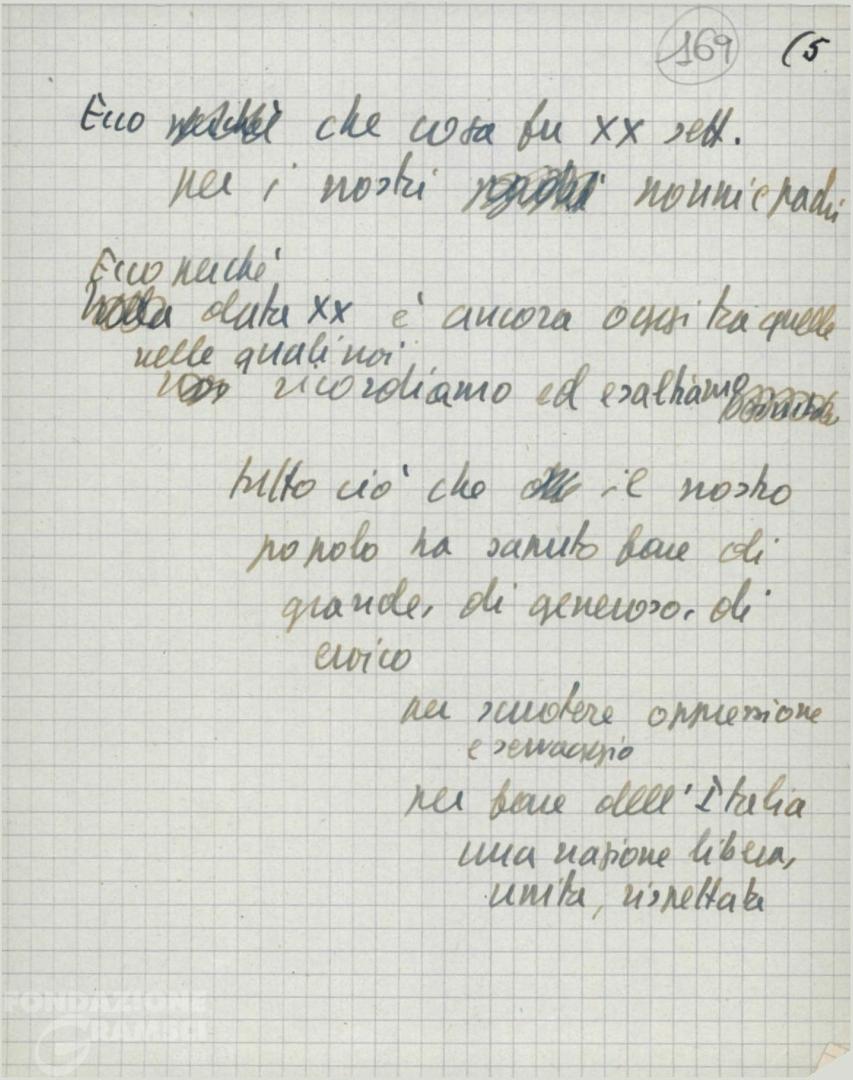 169 (5
Ecco perché che cosa fu XX sett.
per i nostri padri nonni e padri
Ecco perché
data XX è ancora oggi tra quelle
nelle quali noi
ricordiamo ed esaltiamo
tutto ciò che il nostro
popolo ha saputo fare di
grande, di generoso, di
eroico
per scuotere oppressione
e servaggio
per fare dell'Italia
una nazione libera,
unita, rispettata
FONDAZIONE
GRAMSCI